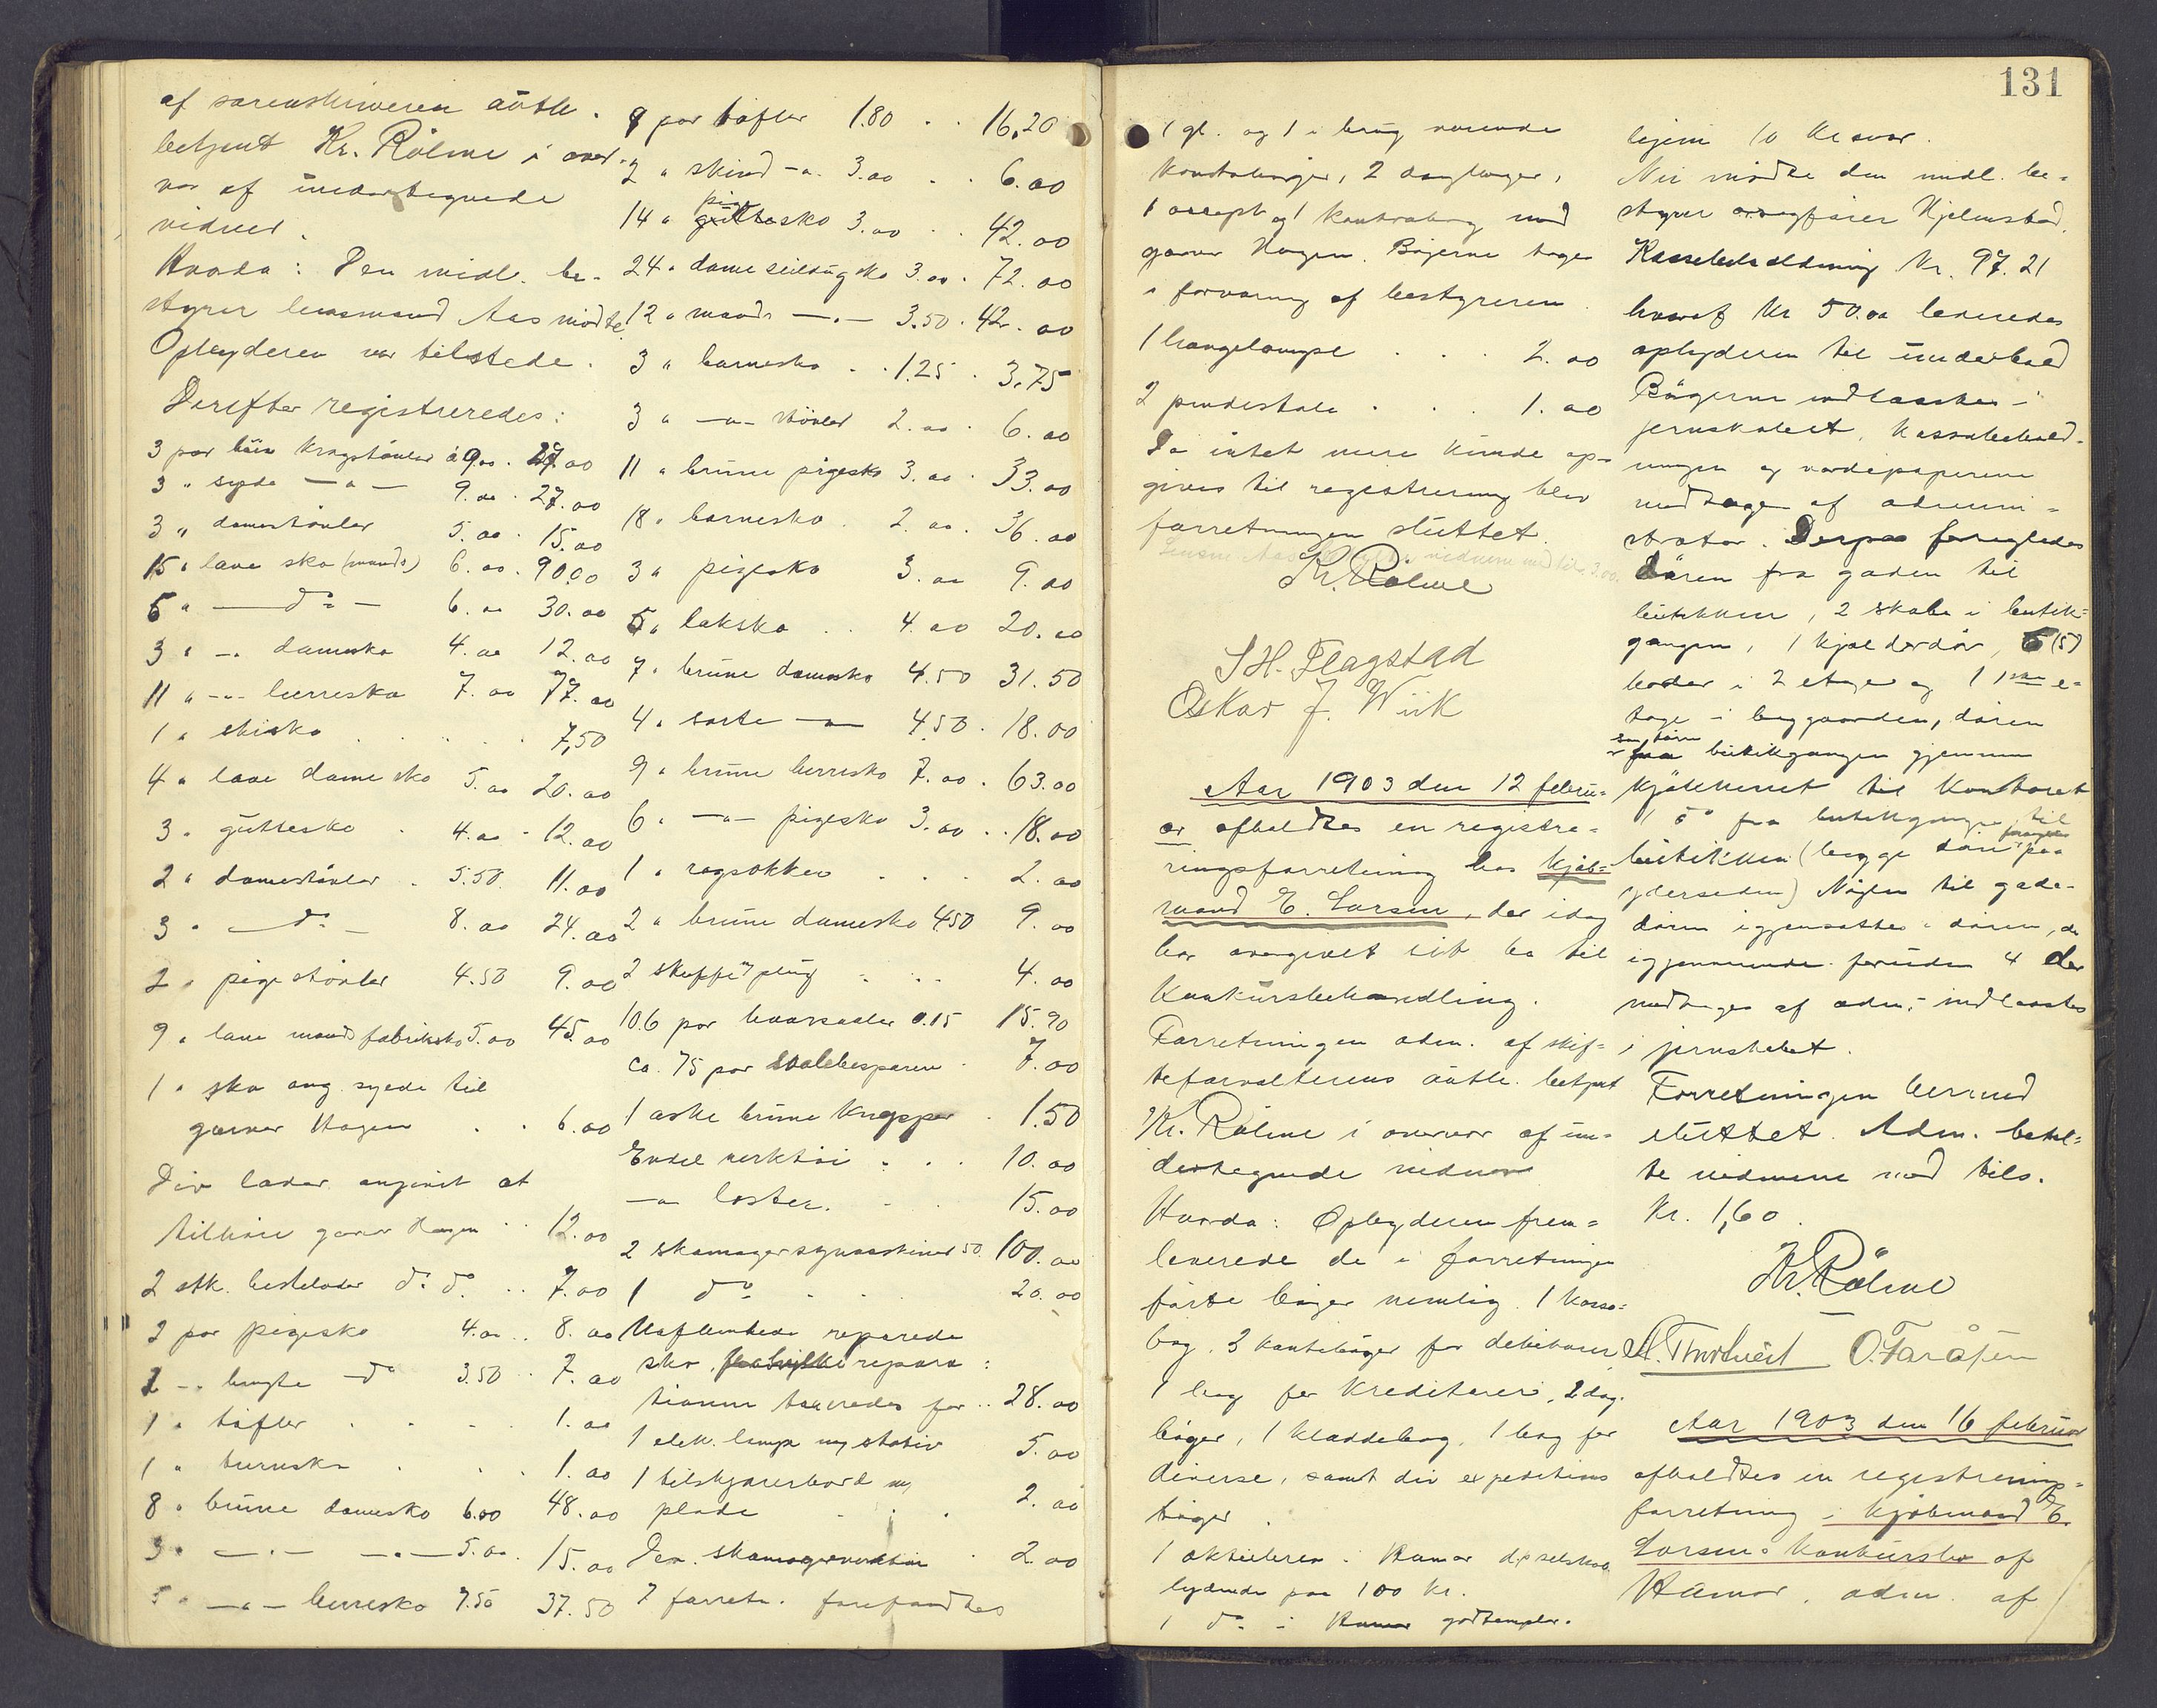 af sorenskriveren auth.
betjent Kr. Rölme i over-
vær af undertegnede
vidner.
Hvorda: Den midl. be-
styrer lensmand Aas mödte
Opbyderen var tilstede.
Derefter registreredes:
3 par knæ Kragstövler à 9.00 . 27.00
3 " syde — " — 9.00 . 27.00
3 " damestövler 5.00 . 15.00
15 " lave sko (mands) 6.00 . 90.00
5 " — do — 6.00 30.00
3 " -"- damesko 4.00 12.00
11 " -"- herresko 7.00 77.00
1 " skisko . . . 7,50
4 " lave damesko 5.00 20.00
3 " guttesko . 4.00 . 12.00
2 " damestövler . 5.50 11.00
3 " — do — 8.00 24.00
2 " pigestövler 4.50 9.00
9 " lave mands fabriksko 5.00 45.00
1 " sko ang. syede til
garver Hagen . . 6.00
Div læder angivet at
tilhöre garver Hagen . . 12.00
2 stk. do do . . 7.00
2 par pigesko 4.00 . . 8.00
2 -"- brugte do 3.50 . . 7.00
1 " töfler . . . 1.00
1 " turnsko . . . 1.00
8 " brune damesko 6.00 48.00
3 " — " — — " — 5.00 . 15.00
5 " — " — herresko 7.50 37.50
9 par töfler 1.80 . . 16,20
2 " skind -"- 3.00 . . 6.00
pige
14 " guttesko 3.00 . . 42.00
24 " dame seildugsko 3.00 . 72.00
12 " mands — " — 3.50 . 42.00
3 " barnesko . . 1.25 . 3.75
3 " — " — stövler 2.00 . 6.00
11 " brune pigesko 3.00 . 33.00
18 " barnesko . 2.00 . 36.00
3 " pigesko 3.00 9.00
5 " laksko . . 4.00 20.00
7 " brune damesko 4.50 31.50
4 " sorte — " — 4.50 . 18.00
9 " brune herresko 7.00 . 63.00
6 " — " — pigesko 3.00 . . 18.00
1 " ragsokker . . . 2.00
2 " brune damesko 4.50 9.00
2 skuffer plug . . . 4.00
106 par haarsaaler 0.15 15.90
ca. 75 par saalebesparere . 7.00
1 æske brune Knapper . 1.50
Endel verktöi . . . 10.00
— " — læster. . . 15.00
2 skomagersymaskiner 50. 100.00
1 do . . . 20.00
Uafhentede reparede
sko, repara:
tionerne taxeredes for . . 28.00
1 elek. lampe m/ stativ 5.00
1 tilskjærerbord m/
plade . . . 2.00
Div. skomagerverktöi . 2.00
I forretn. forefandtes
131
1 gl. og 1 i brug værende
Kontrabøger, 2 dagbøger,
1 accept og 1 Kontrabog med
garver Hagen. Bögerne toges
i forvaring af bestyreren.
1 hængelampe . . . 2.00
2 pindestole . . . 1.00
Da intet mere kunde op-
gives til registrering blev
forretningen sluttet.
Kr. Rölme
S H. Flagstad
Oskar J. Wiik
Aar 1903 den 12 febru-
ar afholdtes en registre-
ringsforretning hos Kjöb-
mand E. Larsen, der idag
har overgivet sit bo til
Konkursbehandling.
Forretningen adm. af skif-
teforvalterens auth. betjent
Kr. Rölme i overvær af un-
dertegnede vidner
Hvorda: Opbyderen frem-
leverede de i forretningen
förte böger nemlig. 1 kassa-
bog, 3 kontoböger for debitorer
1 bog for Kreditorer, 2 dag-
böger, 1 kladdebog, 1 bog for
diverse, samt div expeditions
böger.
1 aktiebrev i Hamar dpselskab
lydende paa 100 kr.
1 do i Hamar godtempler-
hjem 10 Kroner.
Nu mödte den midl. be-
styrer overretssagförer Hjelmstad.
Kassebeholdning Kr. 97.21
hvoraf Kr 50.00 leveredes
opbyderen til underhold
Bögerne indlaastes i
jernskabet, kassabehold-
ningen og værdipapirerne
medtoges af admini-
strator. Derpaa forsegledes
dören fra gaden til
butikken, 2 skabe i butik-
gangen, 1 kjælderdör, 5 (5)
boder i 2 etage og 1 1ste e-
tage i baggaarden, dören
fra butikgangen gjennem
kjökkenet til Kontoret
1 do fra butikgangen til
butikken (begge döre forsegles paa
ydersiden) Nöglen til gade-
dören igjensattes i dören, de
igjenværende foruden 4 der
medtoges af adm., indlaastes
i jernskabet.
Forretningen hermed
sluttet. Adm. betal-
te vidnerne med tils.
Kr. 1,60.
Kr. Rölme
O. Faråsen
Aar 1903 den 16 februar
afholdtes en registrerings-
forretning i Kjöbmand E.
Larsens Konkursbo af
Hamar, adm. af